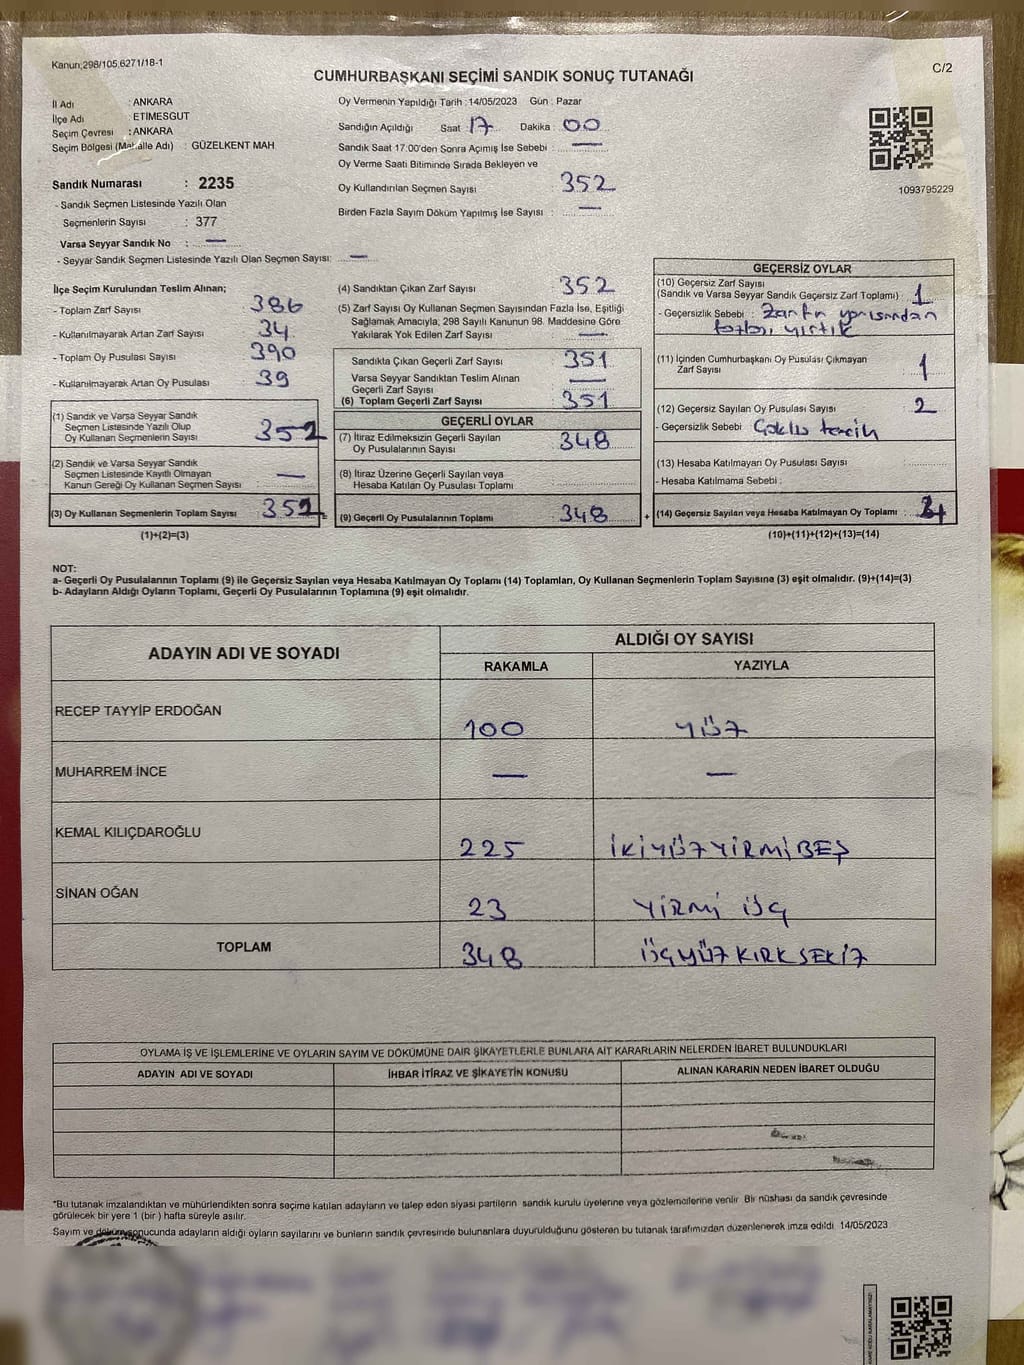 Kanun;298/105,6271/18-1
C/2
CUMHURBAŞKANI SEÇİMİ SANDIK SONUÇ TUTANAĞI
İl Adı : ANKARA
İlçe Adı : ETİMESGUT
Seçim Çevresi : ANKARA
Seçim Bölgesi (Mahalle Adı) : GÜZELKENT MAH
Sandık Numarası : 2235
- Sandık Seçmen Listesinde Yazılı Olan
Seçmenlerin Sayısı : 377
Varsa Seyyar Sandık No : —
- Seyyar Sandık Seçmen Listesinde Yazılı Olan Seçmen Sayısı: —
Oy Vermenin Yapıldığı Tarih : 14/05/2023 Gün : Pazar
Sandığın Açıldığı Saat : 17 Dakika : 00
Sandık Saat 17:00'den Sonra Açımış İse Sebebi : —
Oy Verme Saati Bitiminde Sırada Bekleyen ve
Oy Kullandırılan Seçmen Sayısı : 352
Birden Fazla Sayım Döküm Yapılmış İse Sayısı : —
1093795229
İlçe Seçim Kurulundan Teslim Alınan;
- Toplam Zarf Sayısı : 386
- Kullanılmayarak Artan Zarf Sayısı : 34
- Toplam Oy Pusulası Sayısı : 390
- Kullanılmayarak Artan Oy Pusulası : 39
(1) Sandık ve Varsa Seyyar Sandık
Seçmen Listesinde Yazılı Olup
Oy Kullanan Seçmenlerin Sayısı : 352
(2) Sandık ve Varsa Seyyar Sandık
Seçmen Listesinde Kayıtlı Olmayan
Kanun Gereği Oy Kullanan Seçmen Sayısı : —
(3) Oy Kullanan Seçmenlerin Toplam Sayısı : 352
(1)+(2)=(3)
(4) Sandıktan Çıkan Zarf Sayısı : 352
(5) Zarf Sayısı Oy Kullanan Seçmen Sayısından Fazla İse, Eşitliği
Sağlamak Amacıyla, 298 Sayılı Kanunun 98. Maddesine Göre
Yakılarak Yok Edilen Zarf Sayısı : —
Sandıkta Çıkan Geçerli Zarf Sayısı : 351
Varsa Seyyar Sandıktan Teslim Alınan
Geçerli Zarf Sayısı : —
(6) Toplam Geçerli Zarf Sayısı : 351
GEÇERLİ OYLAR
(7) İtiraz Edilmeksizin Geçerli Sayılan
Oy Pusulalarının Sayısı : 348
(8) İtiraz Üzerine Geçerli Sayılan veya
Hesaba Katılan Oy Pusulası Toplamı :
(9) Geçerli Oy Pusulalarının Toplamı : 348
+
GEÇERSİZ OYLAR
(10) Geçersiz Zarf Sayısı
(Sandık ve Varsa Seyyar Sandık Geçersiz Zarf Toplamı) : 1
- Geçersizlik Sebebi : Zarfın yarısından
fazlası yırtık
(11) İçinden Cumhurbaşkanı Oy Pusulası Çıkmayan
Zarf Sayısı : 1
(12) Geçersiz Sayılan Oy Pusulası Sayısı : 2
- Geçersizlik Sebebi : Çoklu tercih
(13) Hesaba Katılmayan Oy Pusulası Sayısı :
- Hesaba Katılmama Sebebi :
(14) Geçersiz Sayılan veya Hesaba Katılmayan Oy Toplamı :
(10)+(11)+(12)+(13)=(14)
NOT:
a- Geçerli Oy Pusulalarının Toplamı (9) ile Geçersiz Sayılan veya Hesaba Katılmayan Oy Toplamı (14) Toplamları, Oy Kullanan Seçmenlerin Toplam Sayısına (3) eşit olmalıdır. (9)+(14)=(3)
b- Adayların Aldığı Oyların Toplamı, Geçerli Oy Pusulalarının Toplamına (9) eşit olmalıdır.
ADAYIN ADI VE SOYADI
ALDIĞI OY SAYISI
RAKAMLA YAZIYLA
RECEP TAYYİP ERDOĞAN 100 YÜZ
MUHARREM İNCE — —
KEMAL KILIÇDAROĞLU 225 İKİYÜZYİRMİBEŞ
SİNAN OĞAN 23 YİRMİ ÜÇ
TOPLAM 348 ÜÇYÜZKIRKSEKİZ
OYLAMA İŞ VE İŞLEMLERİNE VE OYLARIN SAYIM VE DÖKÜMÜNE DAİR ŞİKAYETLERLE BUNLARA AİT KARARLARIN NELERDEN İBARET BULUNDUKLARI
ADAYIN ADI VE SOYADI İHBAR İTİRAZ VE ŞİKAYETİN KONUSU ALINAN KARARIN NEDEN İBARET OLDUĞU
*Bu tutanak imzalandıktan ve mühürlendikten sonra seçime katılan adayların ve talep eden siyasi partilerin sandık kurulu üyelerine veya gözlemcilerine verilir. Bir nüshası da sandık çevresinde
görülecek bir yere 1 (bir) hafta süreyle asılır.
Sayım ve döküm sonucunda adayların aldığı oyların sayılarını ve bunların sandık çevresinde bulunanlara duyurulduğunu gösteren bu tutanak tarafımızdan düzenlenerek imza edildi. 14/05/2023